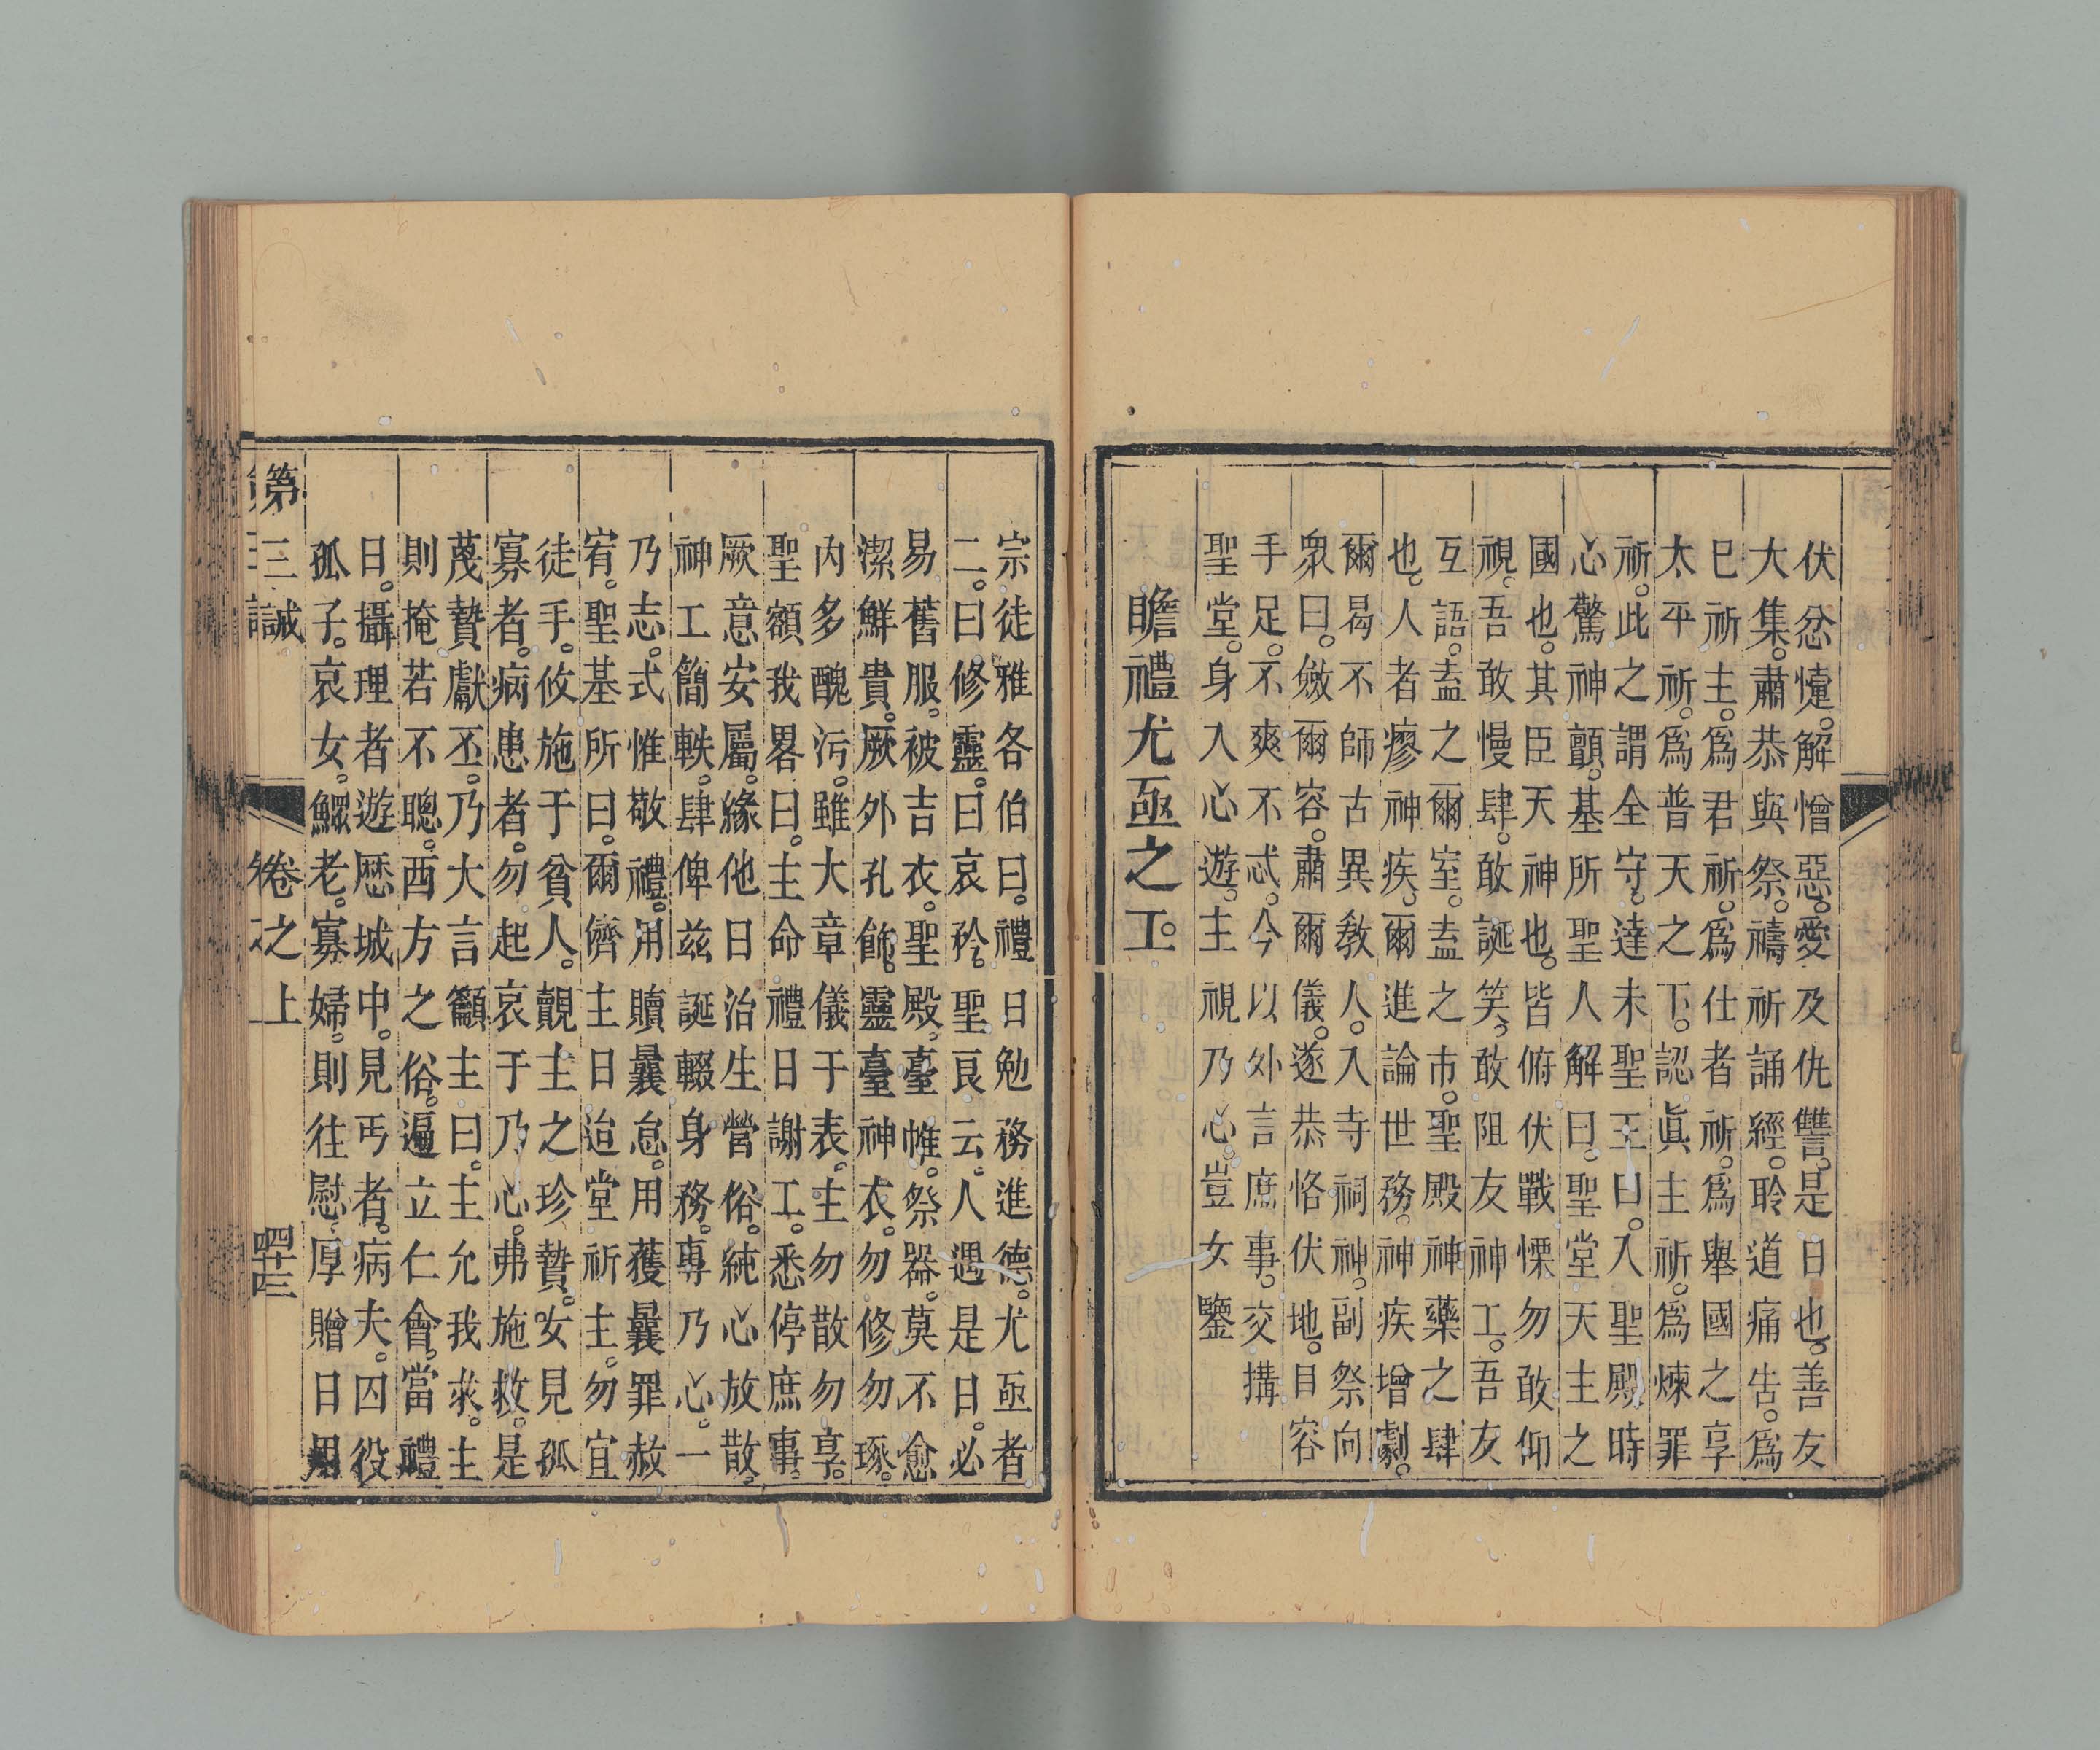 伏忿懥。解憎惡。愛及仇讐。是日也。善友
大集。肅恭與祭。禱祈誦經。聆道痛吿。爲
巳祈主。爲君祈。爲仕者祈。爲舉國之享
太平祈。爲普天之下。認眞主祈。爲煉罪
祈。此之謂全守。達未聖王曰。入聖殿時
心驚神顫。基所聖人解曰。聖堂天主之
國也。其臣天神也。皆俯伏戰慄勿敢仰
視。吾敢慢肆。敢誕笑。敢阻友神工。吾友
互語。盍之爾室。盍之市。聖殿神藥之肆
也。人者瘳神疾。爾進論世務。神疾增劇。
爾曷不師古異敎人。入寺祠神。副祭向
衆曰。斂爾容。肅爾儀。遂恭恪伏地。目容
手足。不爽不忒。今以外言庶事。交搆
聖堂。身入心遊。主視乃心。豈女鑒
瞻禮尤亟之工。
宗徒雅各伯曰。禮日勉務進德。尤亟者
二。曰修靈。曰哀矜。聖艮云。人遇是日。必
易舊服。被吉衣。聖殿臺帷。祭器。莫不愈
潔鮮貴。厥外孔飾。靈臺神衣。勿修勿琢。
內多醜污。雖大章儀于表。主勿散勿享。
聖額我畧曰。主命禮日謝工。悉停庶事。
厥意安屬。緣他日治生營俗。純心放散。
神工簡軼。肆俾兹誕輟身務。專乃心。一
乃志。式惟敬禮。用贖曩怠。用獲曩罪赦
宥。聖基所曰。爾儕主日迨堂祈主。勿宜
徒手。攸施于貧人。覿主之珍贄。女見孤
寡者。病患者。勿起哀于乃心。弗施救。是
蔑贄獻丕。乃大言籲主曰。主允我求。主
則掩若不聰。西方之俗。遍立仁會。當禮
日。攝理者遊歷城中。見丐者。病夫。囚役
孤子。哀女。鰥老。寡婦。則往慰。厚贈日用
第三誡 卷之上 四十三